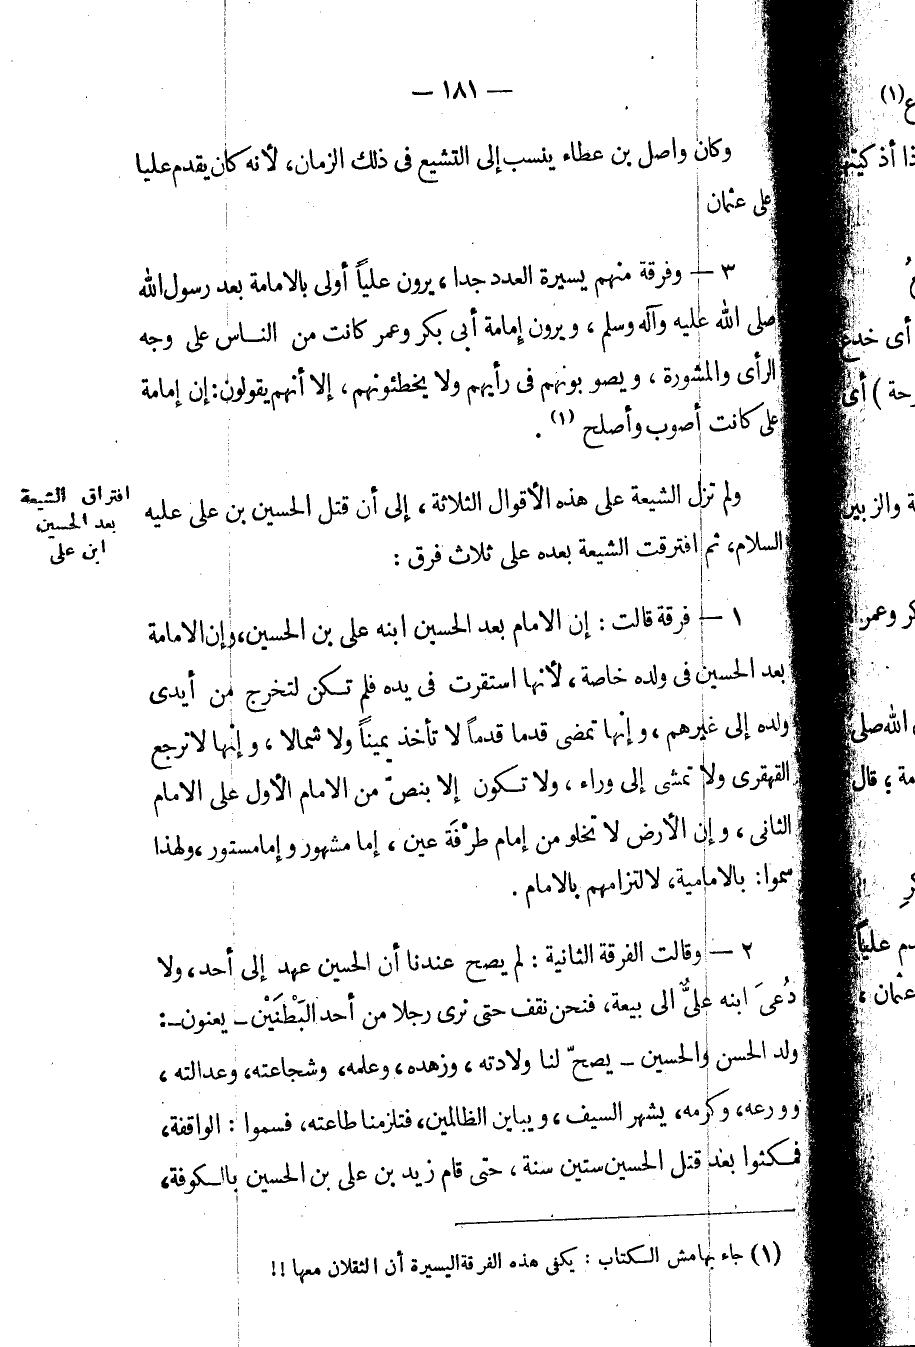 — ١٨١ —
وكان واصل بن عطاء ينسب إلى التشيع فى ذلك الزمان، لأنه كان يقدم عليا
على عثمان
٣ — وفرقة منهم يسيرة العدد جدا، يرون علياً أولى بالامامة بعد رسول الله
صلى الله عليه وآله وسلم، ويرون إمامة أبى بكر وعمر كانت من الناس على وجه
الرأى والمشورة، ويصوبونهم فى رأيهم ولا يخطئونهم، إلا أنهم يقولون: إن إمامة
على كانت أصوب وأصلح (١).
ولم تزل الشيعة على هذه الأقوال الثلاثة، إلى أن قتل الحسين بن على عليه
السلام، ثم افترقت الشيعة بعده على ثلاث فرق:
افتراق الشيعة
بعد الحسين
ابن على
١ — فرقة قالت: إن الامام بعد الحسين ابنه على بن الحسين، وإن الامامة
بعد الحسين فى ولده خاصة، لأنها استقرت فى يده فلم تكن لتخرج من أيدى
ولده إلى غيرهم، وإنها تمضى قدما قدماً لا تأخذ يميناً ولا شمالا، وإنها لا ترجع
القهقرى ولا تمشى إلى وراء، ولا تكون إلا بنصّ من الامام الأول على الامام
الثانى، وإن الأرض لا تخلو من إمام طرْفَة عين، إما مشهور وإما مستور، ولهذا
سموا: بالامامية، لالتزامهم بالامام.
٢ — وقالت الفرقة الثانية: لم يصح عندنا أن الحسين عهد إلى أحد، ولا
دُعىَ ابنه علىٌّ الى بيعة، فنحن نقف حتى نرى رجلا من أحد البَطْنَيْن — يعنون —:
ولد الحسن والحسين — يصحّ لنا ولادته، وزهده، وعلمه، وشجاعته، وعدالته،
وورعه، وكرمه، يشهر السيف، ويباين الظالمين، فتلزمنا طاعته، فسموا: الواقفة،
فمكثوا بعد قتل الحسين ستين سنة، حتى قام زيد بن على بن الحسين بالكوفة،
(١) جاء بهامش الكتاب: يكفى هذه الفرقة اليسيرة أن الثقلان معها!!
(١)
أى خدع
رحة) أى
ة والزبير
كر وعمر
الله صلى
مة؛ قال
م علياً
عثمان،